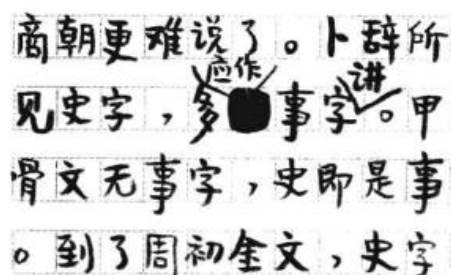 商朝更难说了。卜辞所
见史字，多应作事字讲。甲
骨文无事字，史即是事
。到了周初金文，史字